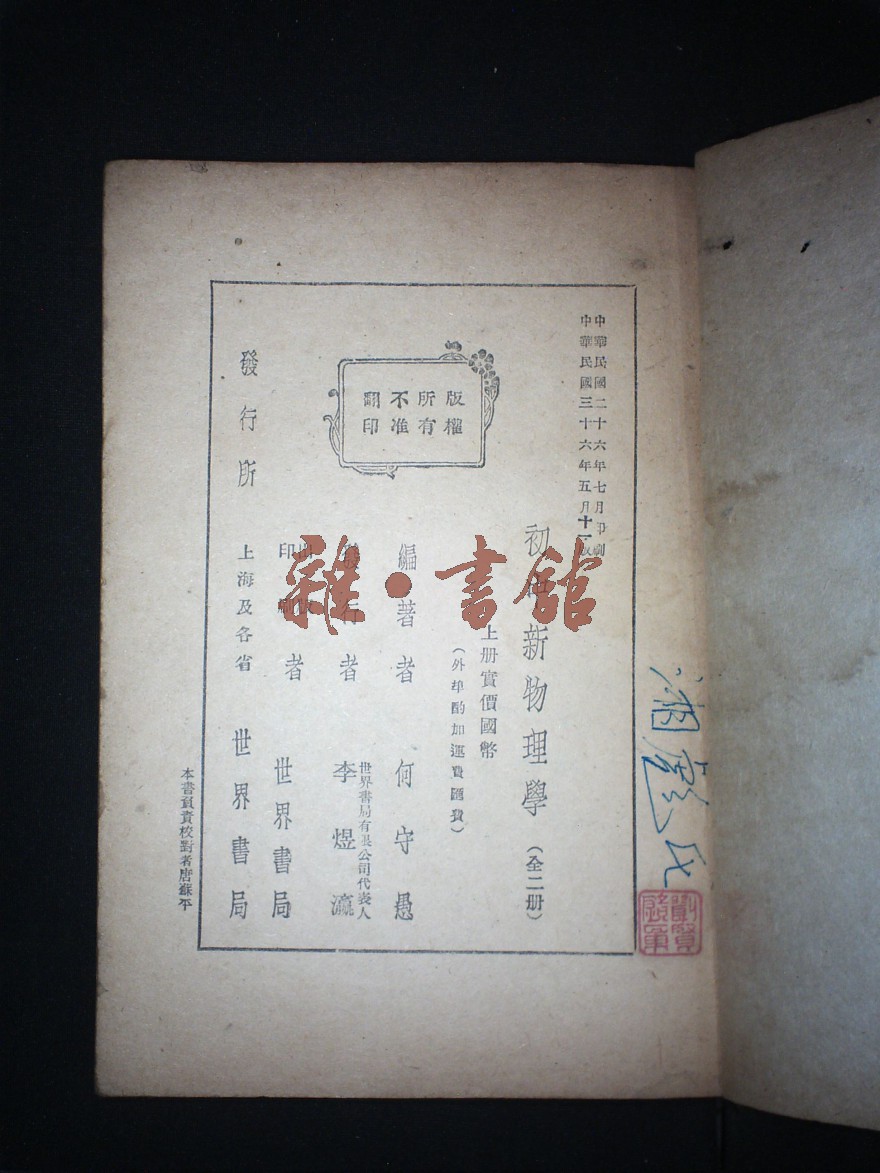 中華民國二十六年七月印刷
中華民國三十六年五月十一版
初中新物理學（全二册）
上册實價國幣
（外埠酌加運費匯費）
版權
所有
不准
翻印
編著者 何守愚
發行者 世界書局有限公司代表人
李煜瀛
出版
印刷
者 世界書局
發行所 上海及各省 世界書局
本書負責校對者唐蘇平
雜·書舘